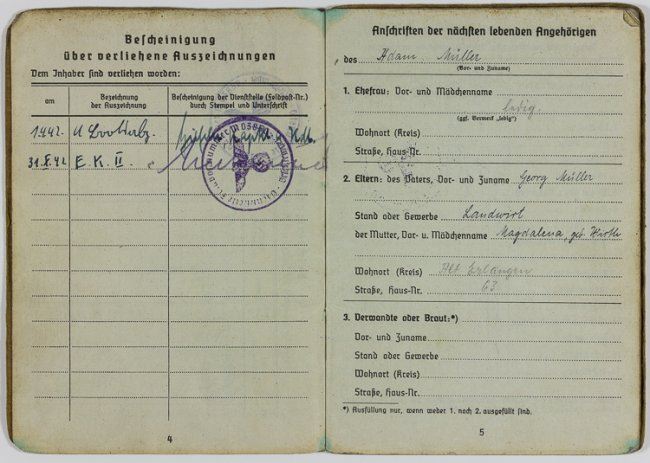 Bescheinigung
über verliehene Auszeichnungen
Dem Inhaber sind verliehen worden:
am
Bezeichnung
der Auszeichnung
Bescheinigung der Dienststelle (Feldpost-Nr.)
durch Stempel und Unterschrift
E.K. II.
4
Anschriften der nächsten lebenden Angehörigen
des Adam Müller
(Vor- und Zuname)
1. Ehefrau: Vor- und Mädchenname
ledig.
(ggf. Vermerk „ledig“)
Wohnort (Kreis)
Straße, Haus-Nr.
2. Eltern: des Vaters, Vor- und Zuname Georg Müller
Stand oder Gewerbe Landwirt
der Mutter, Vor- u. Mädchenname Magdalena, geb.
Wohnort (Kreis) Erlangen
Straße, Haus-Nr. 63
3. Verwandte oder Braut:*)
Vor- und Zuname
Stand oder Gewerbe
Wohnort (Kreis)
Straße, Haus-Nr.
*) Ausfüllung nur, wenn weder 1. noch 2. ausgefüllt sind.
5